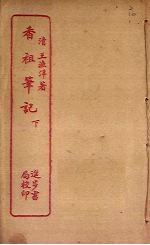 清 王士禛著
香祖筆記 下
進步書
局校印